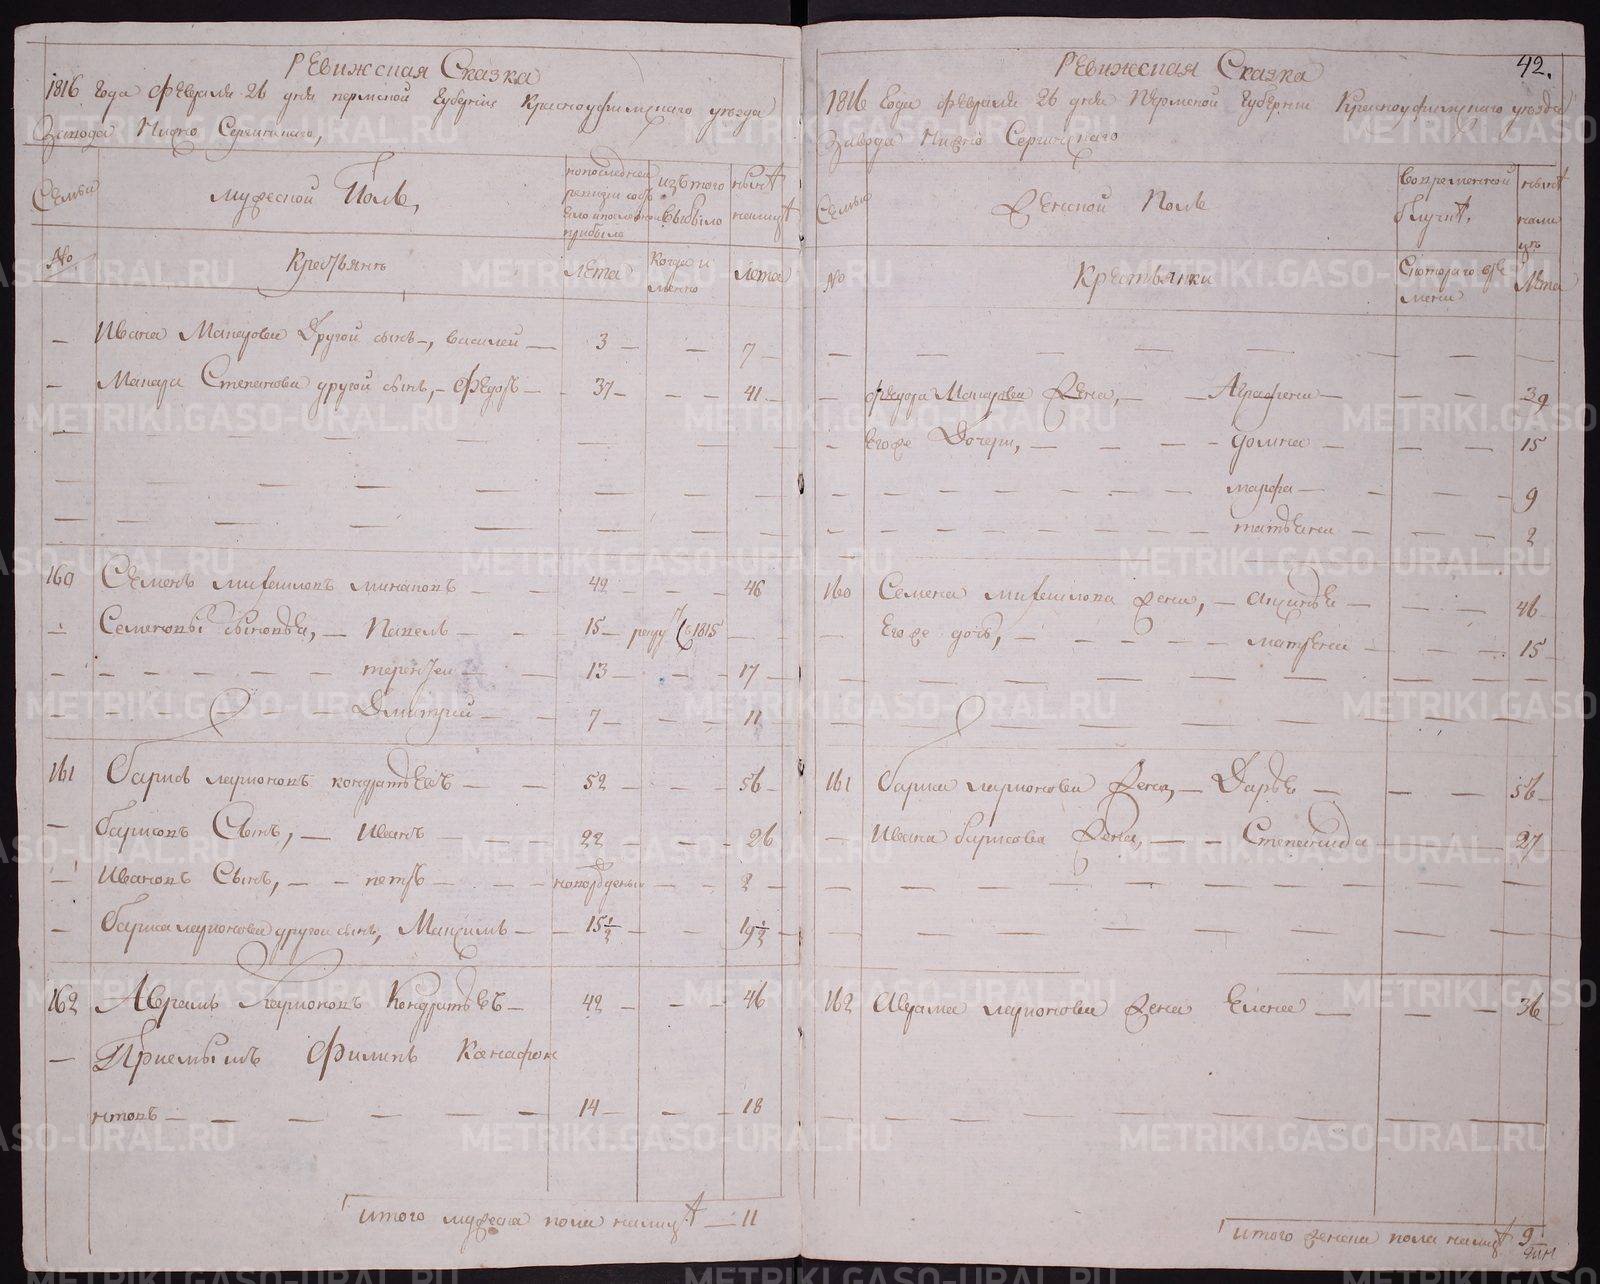 Ревижская Сказка
1816 Года Февраля 26 дня пермской Губерніи Красноуфимскаго уезда
Завода Нижно Сергинскаго,
Семьи
мужеской Полъ,
изътого выбыло
нынѣ налицѣ
№
Крестьянъ
Лета
Когда имянно
лета
— Ивана Макарова Другой сынъ —, василей — 3 — — 7 —
— Макара Степанова другой сынъ, — Федоръ — 37 — — — 41 —
160 Семенъ михаиловъ — 42 — — — 46
— Семеновы сыновья, — Павелъ — — 15 — 1815
— терентеи — 13 — — — 17 —
— Дмитрий — 7 — — — 11
161 барисъ ларионовъ кондратьевъ — — 52 — — — 56 —
— барисовъ Сынъ, — Иванъ — — 22 — — — 26
— Ивановъ Сынъ, — — петръ — — новорожденъ — — 2 —
— бариса ларионова другои сынъ, Максимъ — — 15 1/2 — — — 19 1/2 —
162 Аврамъ Ларионовъ Кондратьевъ — 42 — — — 46
— Приемышъ Филипъ Ксенофон
товъ — — — — — 14 — — — 18
итого мужеска пола налицѣ — 11
42.
Ревижская Сказка
1816 Года февраля 26 дня Пермской Губернии Красноуфимскаго уезда
Завода Нижно Сергинскаго
Семьи
Женской Полъ
вовременной отлучкѣ.
нынѣ налицѣ
№
Крестьянки
Скотораго време мени
Лета
— федора Макарова Жена, — — Аграфена — — — 39
— Егоже Дочери, — — — — домна — — — 15
— марфа — — — 9
— татьяна — — — 2
160 Семена михаилова жена, — — — — 46
— Егоже дочь, — — — — матрена — — — 15 —
161 бариса ларионова Жена, — Дарья — — — 56 —
— Ивана барисова Жена, — — Степанида — 27
162 Аврама ларионова жена Елена — — — 36 —
итого женска пола налицѣ 9